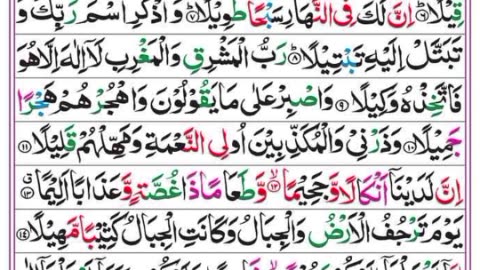 قِيْلًا ۝٦ اِنَّ لَكَ فِى النَّهَارِ سَبْحًا طَوِيْلًا ۝٧ وَاذْكُرِ اسْمَ رَبِّكَ وَ
تَبَتَّلْ اِلَيْهِ تَبْتِيْلًا ۝٨ رَبُّ الْمَشْرِقِ وَالْمَغْرِبِ لَاۤ اِلٰهَ اِلَّا هُوَ
فَاتَّخِذْهُ وَكِيْلًا ۝٩ وَاصْبِرْ عَلٰى مَا يَقُوْلُوْنَ وَاهْجُرْهُمْ هَجْرًا
جَمِيْلًا ۝١٠ وَذَرْنِىْ وَالْمُكَذِّبِيْنَ اُولِى النَّعْمَةِ وَمَهِّلْهُمْ قَلِيْلًا ۝١١
اِنَّ لَدَيْنَاۤ اَنْكَالًا وَّجَحِيْمًا ۝١٢ وَّطَعَامًا ذَا غُصَّةٍ وَّعَذَابًا اَلِيْمًا ۝١٣
يَوْمَ تَرْجُفُ الْاَرْضُ وَالْجِبَالُ وَكَانَتِ الْجِبَالُ كَثِيْبًا مَّهِيْلًا ۝١٤